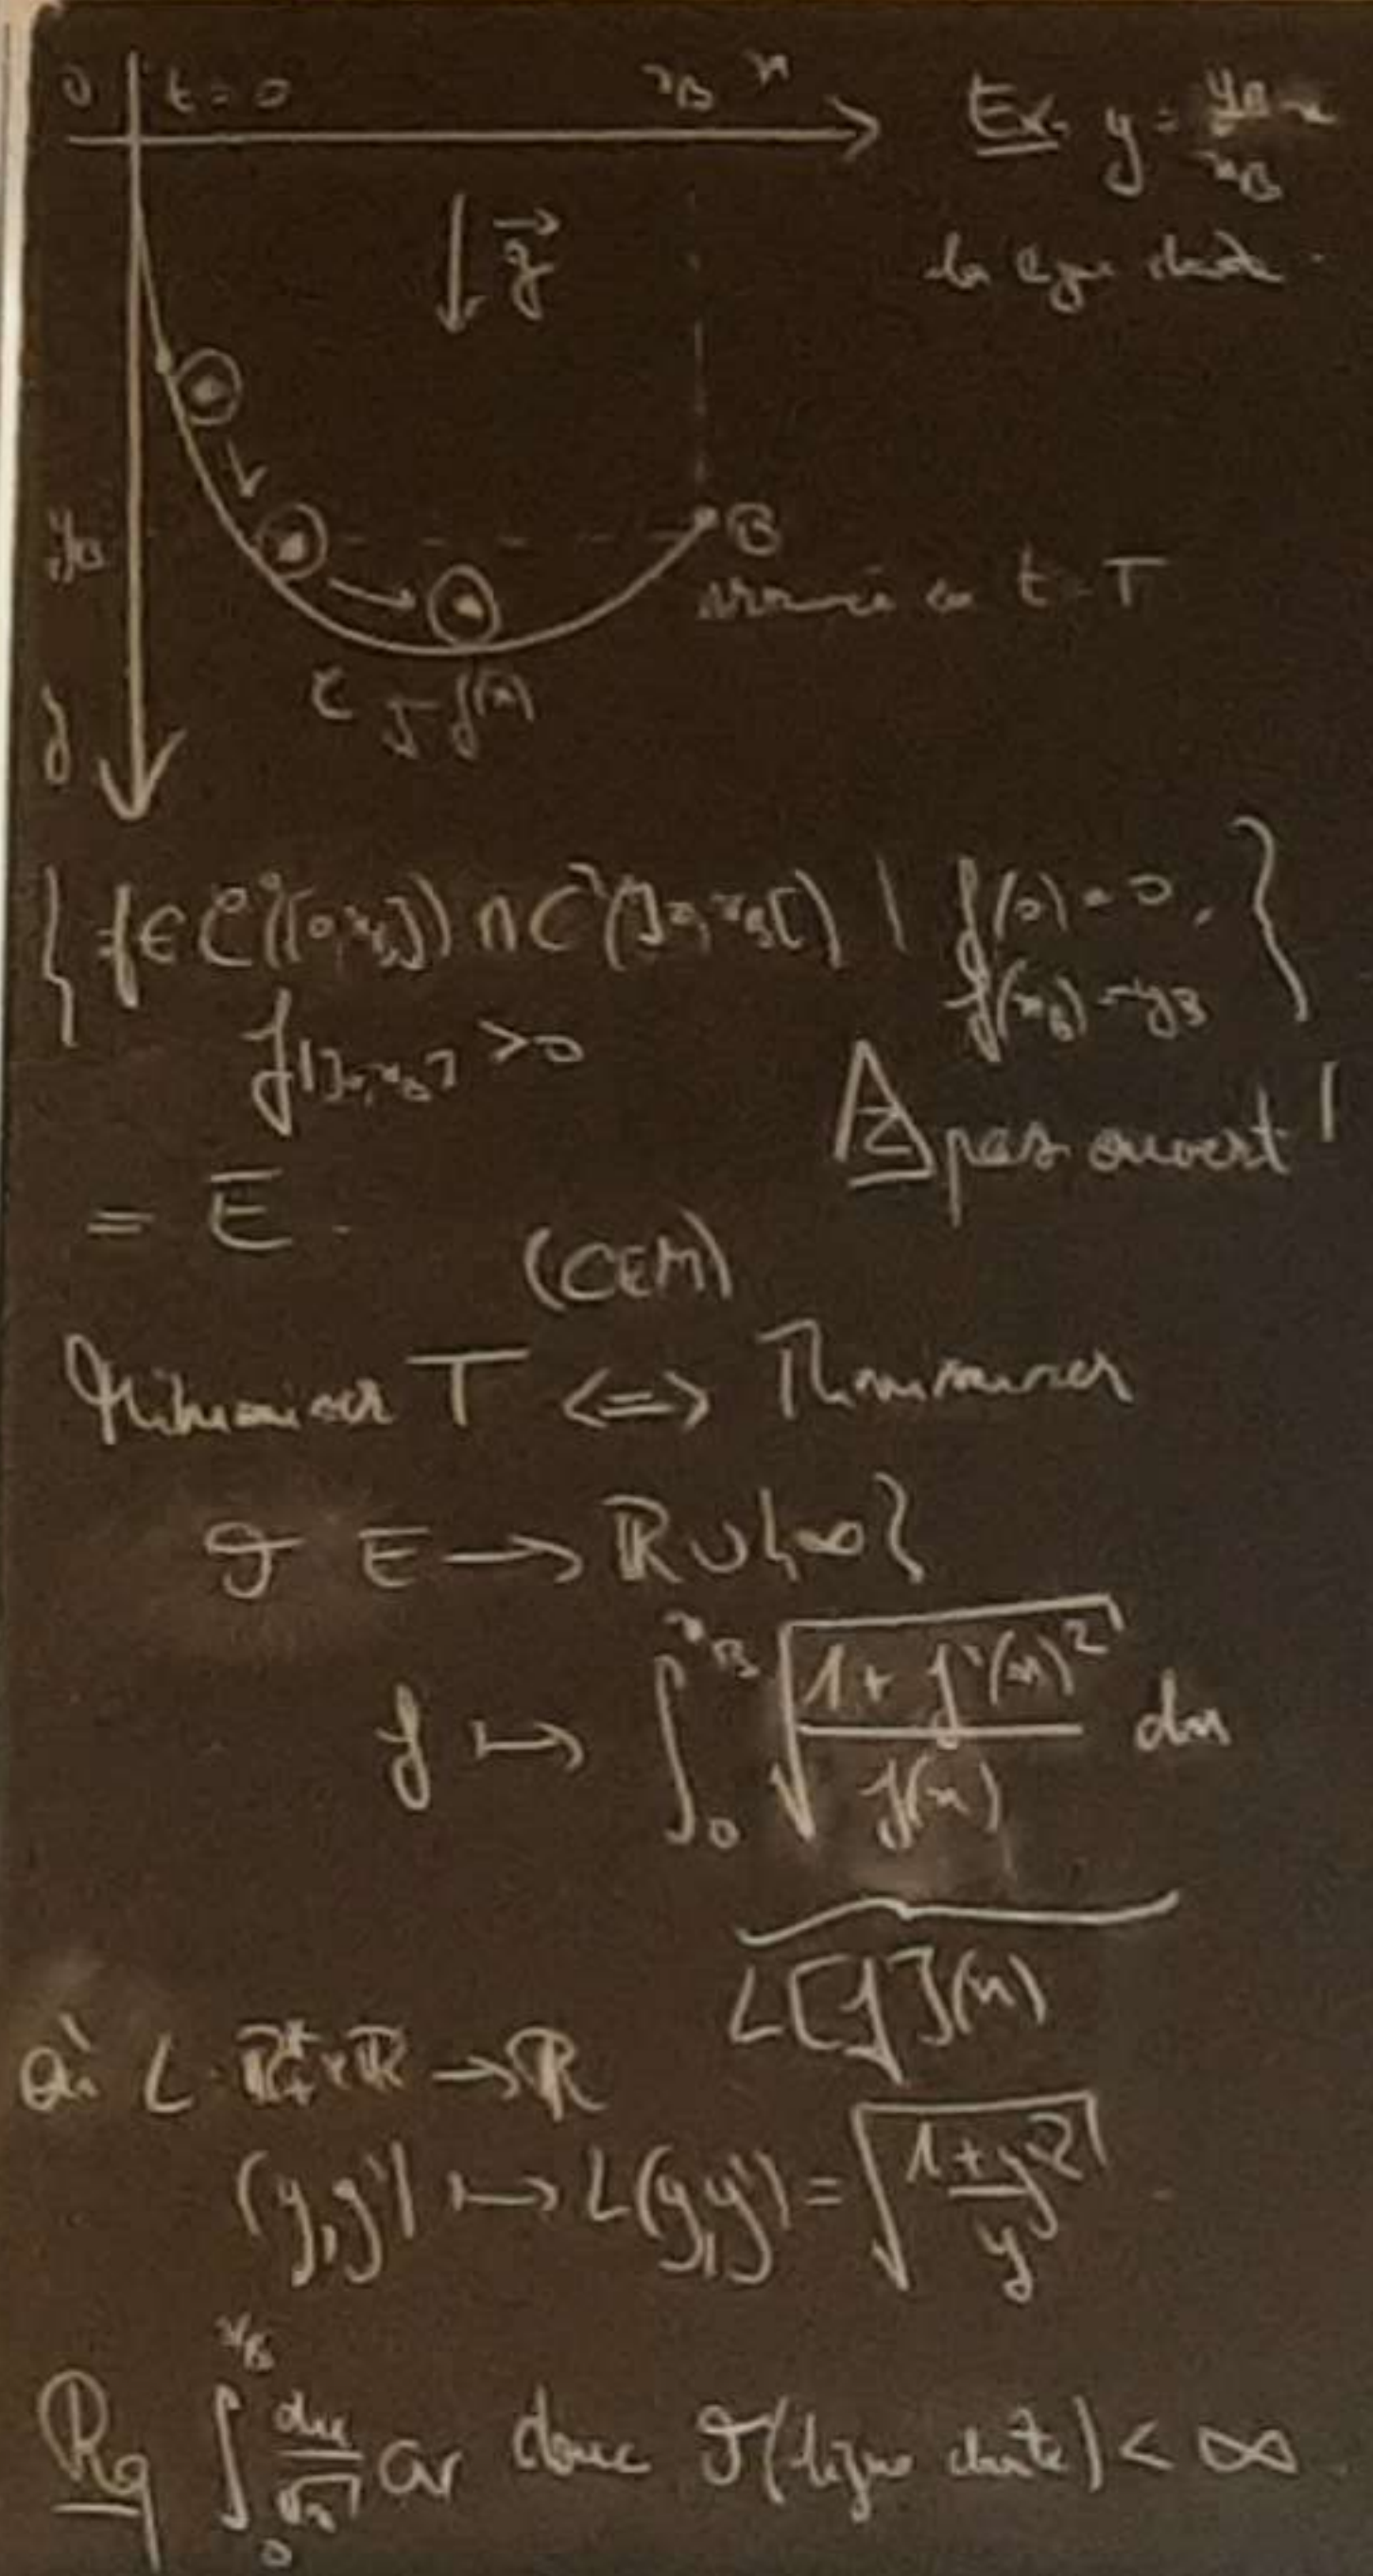 0 t=0 x_B x
Ex. y = y_B/x_B x
la ligne droite.
↓ g⃗
y_B
B
arrivée en t=T
f(x)
y
{ f ∈ C⁰([0,x_B]) ∩ C¹(]0,x_B[) | f(0)=0, f(x_B)=y_B }
f|]0,x_B] >0
⚠ pas ouvert !
= E.
(CEM)
Minimiser T <=> Minimiser
J E → ℝ∪{∞}
f ↦ ∫₀^{x_B} √((1+f'(x)²)/f(x)) dx
L[f](x)
Où L: ℝ₊*×ℝ → ℝ
(y,y') ↦ L(y,y') = √((1+y'²)/y)
Rq ∫₀^{x_B} dx/√x cv donc J(ligne droite) < ∞.